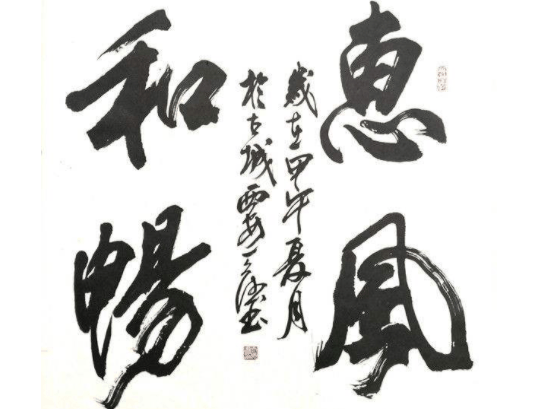 惠風
和暢
歲在甲午夏月
於古城西安